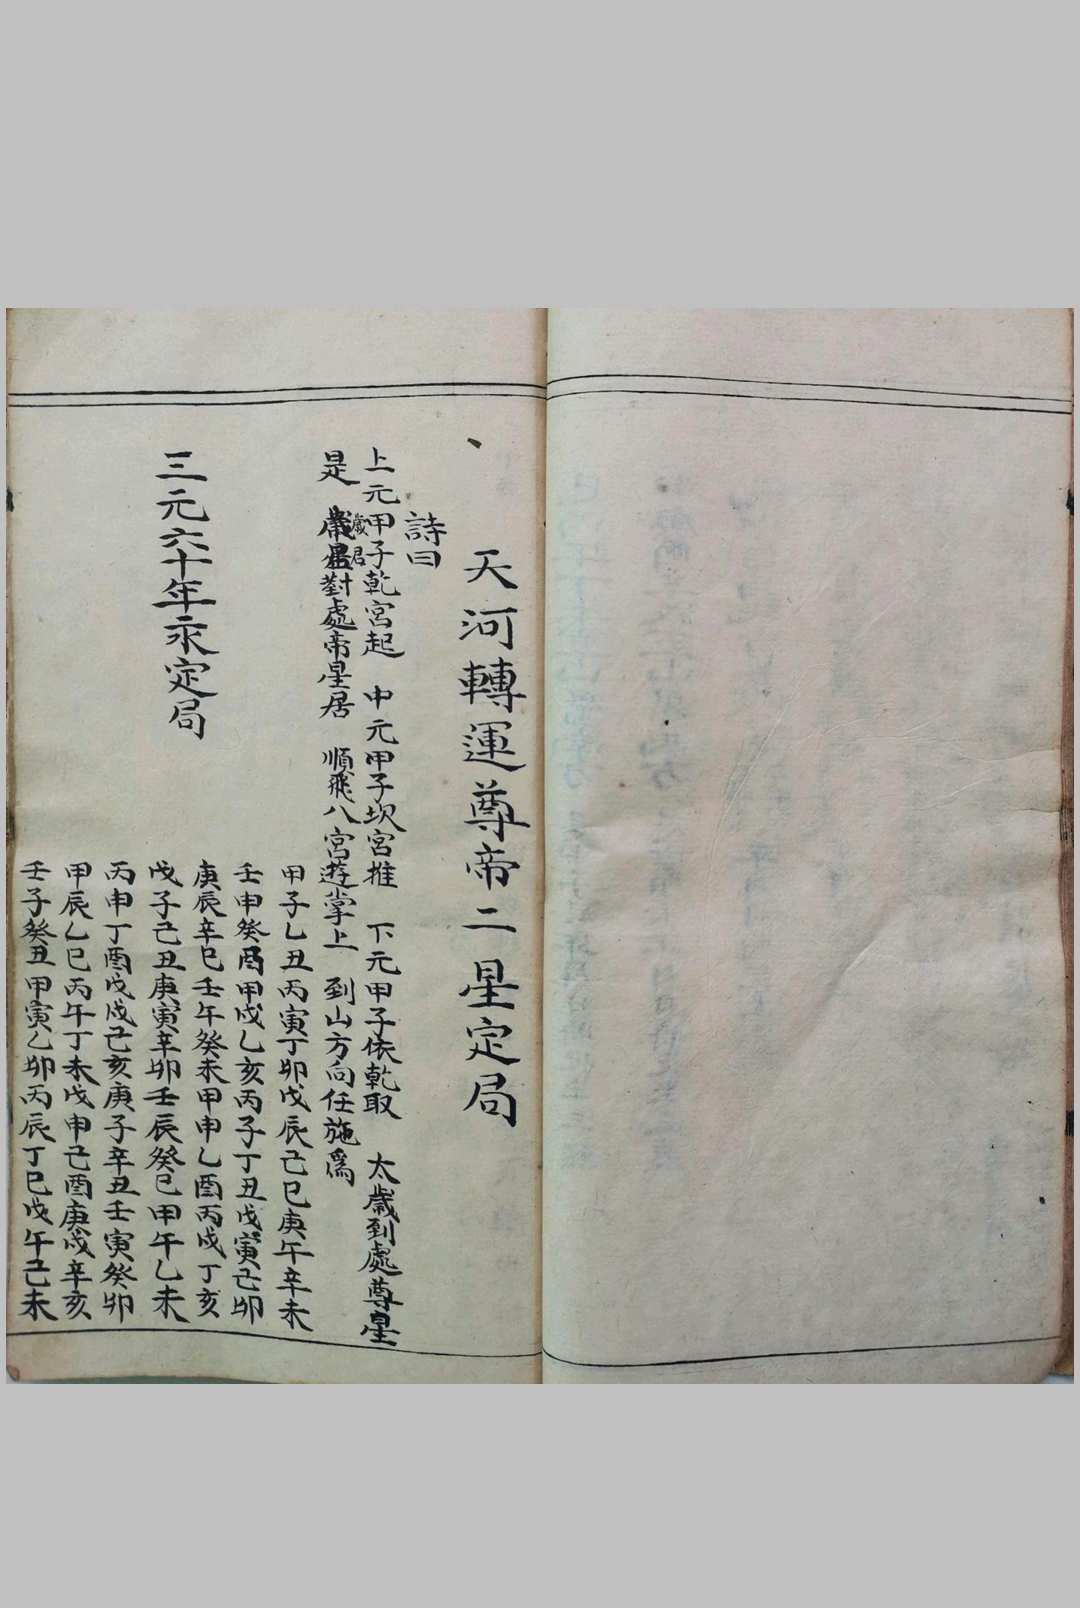 天河轉運尊帝二星定局
詩曰
上元甲子乾宮起 中元甲子坎宮推 下元甲子依乾取 太歲到處尊星
歲君
是 對處帝星居 順飛八宮遊掌上 到山方向任施為
三元六十年永定局
甲子乙丑丙寅丁卯戊辰己巳庚午辛未
壬申癸酉甲戌乙亥丙子丁丑戊寅己卯
庚辰辛巳壬午癸未甲申乙酉丙戌丁亥
戊子己丑庚寅辛卯壬辰癸巳甲午乙未
丙申丁酉戊戌己亥庚子辛丑壬寅癸卯
甲辰乙巳丙午丁未戊申己酉庚戌辛亥
壬子癸丑甲寅乙卯丙辰丁巳戊午己未